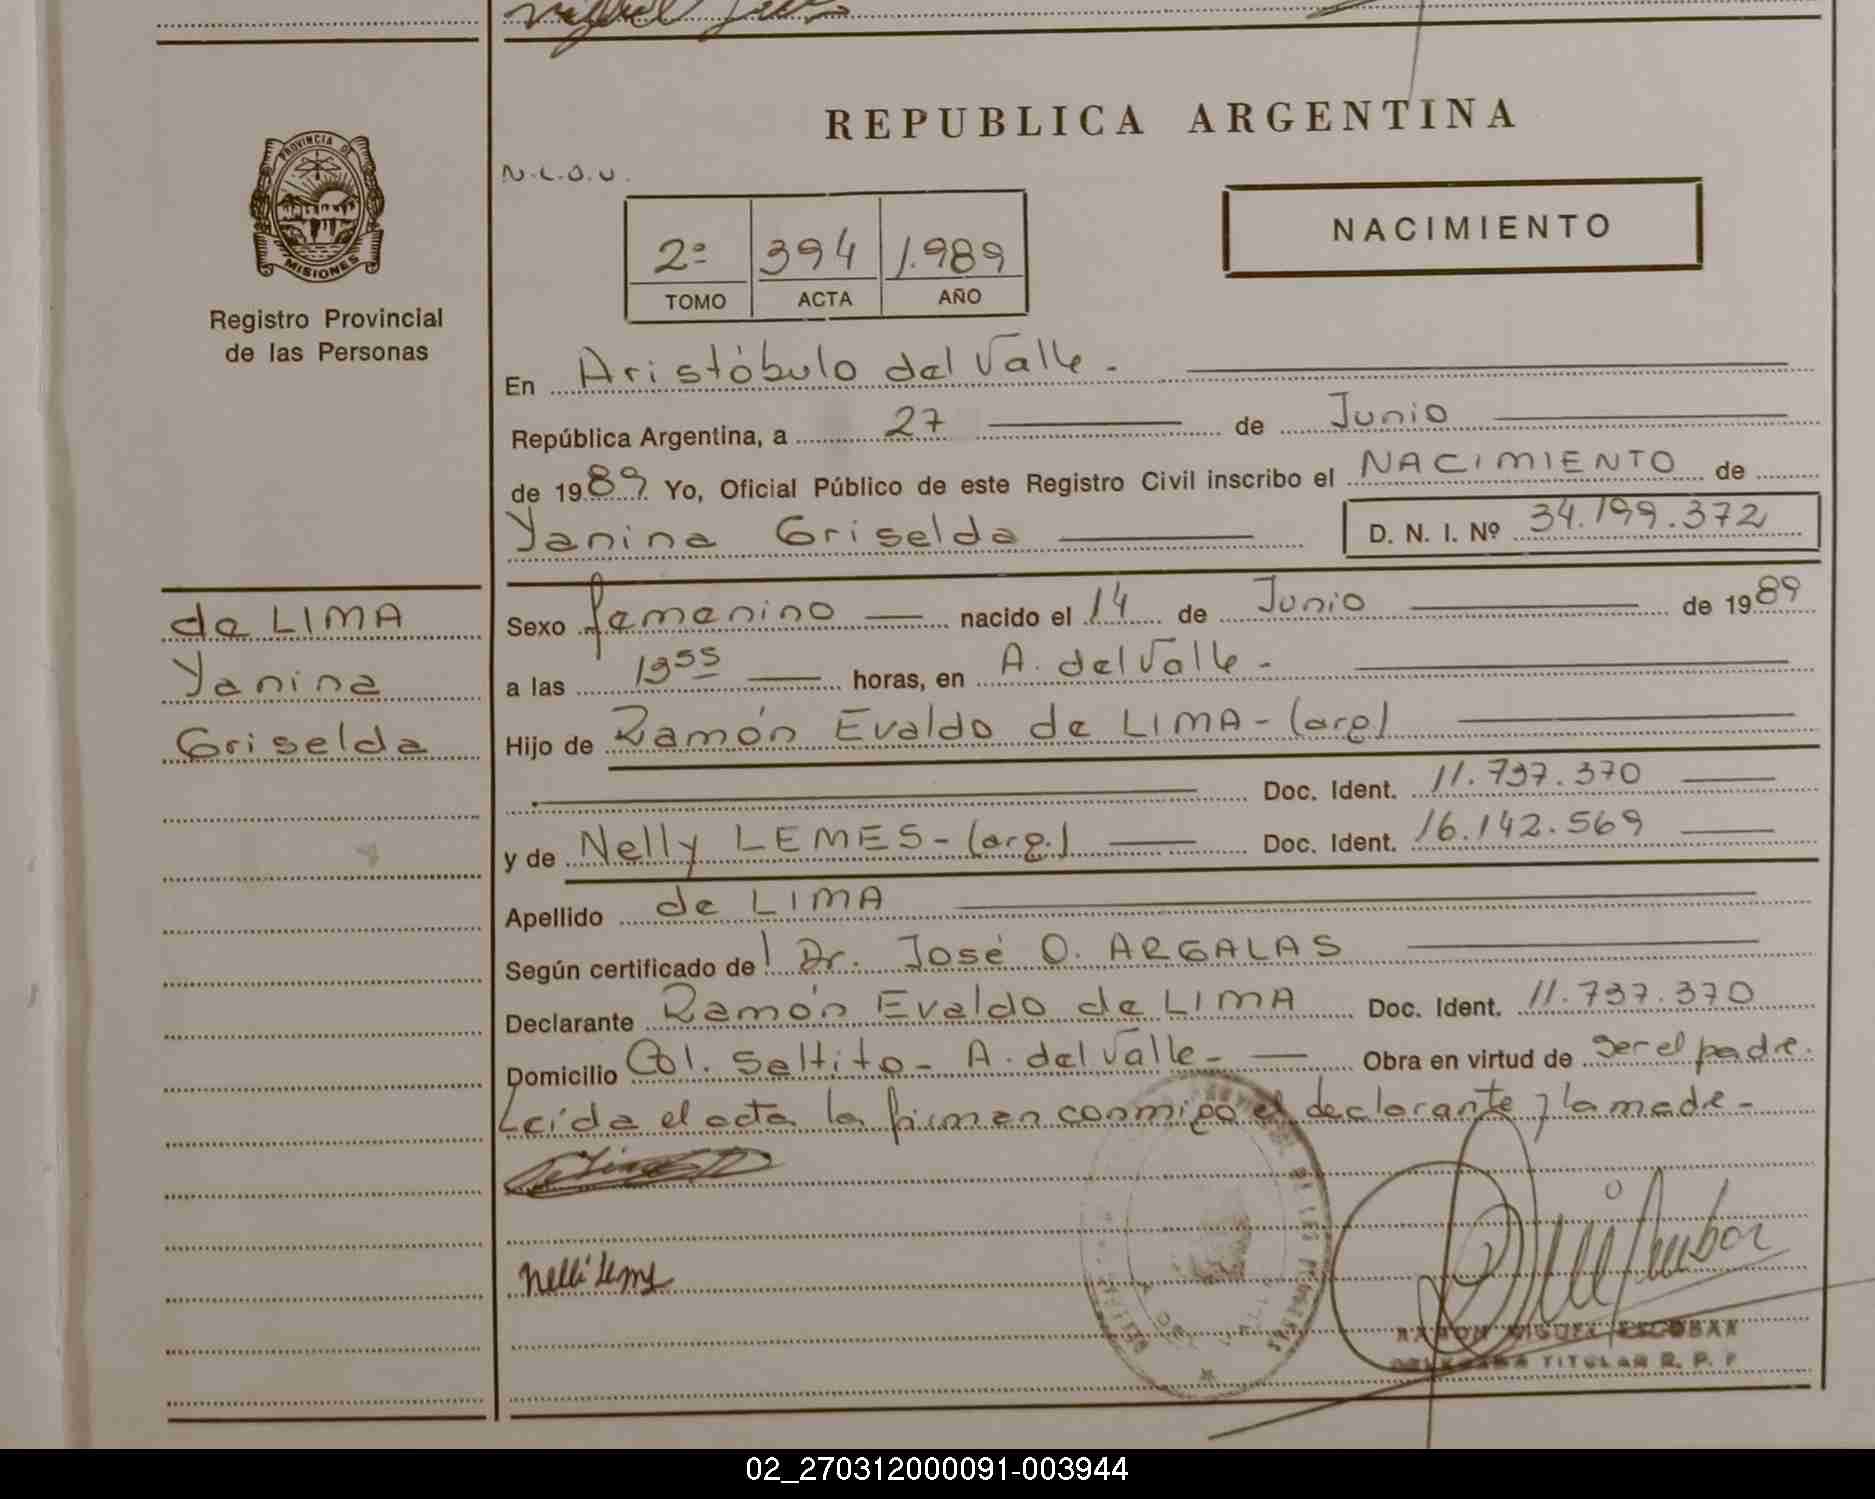 REPUBLICA ARGENTINA
PROVINCIA DE
MISIONES
Registro Provincial
de las Personas
N.L.O.U.
2º 394 1.989
TOMO ACTA AÑO
NACIMIENTO
En Aristóbulo del Valle.
República Argentina, a 27 de Junio
de 1989. Yo, Oficial Público de este Registro Civil inscribo el NACIMIENTO de
Yanina Griselda D. N. I. Nº 34.199.372
de LIMA
Yanina
Griselda
Sexo femenino nacido el 14 de Junio de 1989
a las 19 55 horas, en A. del Valle -
Hijo de Ramón Evaldo de LIMA - (arg)
Doc. Ident. 11.737.370
y de Nelly LEMES - (arg.) Doc. Ident. 16.142.569
Apellido de LIMA
Según certificado del Dr. José O. ARGALAS
Declarante Ramón Evaldo de LIMA Doc. Ident. 11.737.370
Domicilio Col. Saltito - A. del Valle - Obra en virtud de ser el padre.
Leída el acta la firman conmigo el declarante y la madre -
Nelli Lems
MIGUEL ESCOBAR
TITULAR R. P. P
02_270312000091-003944